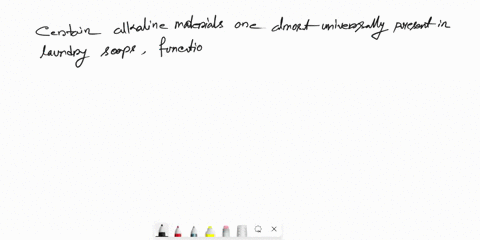 Certain alkaline materials one almost universally present in
laundry soaps, functio